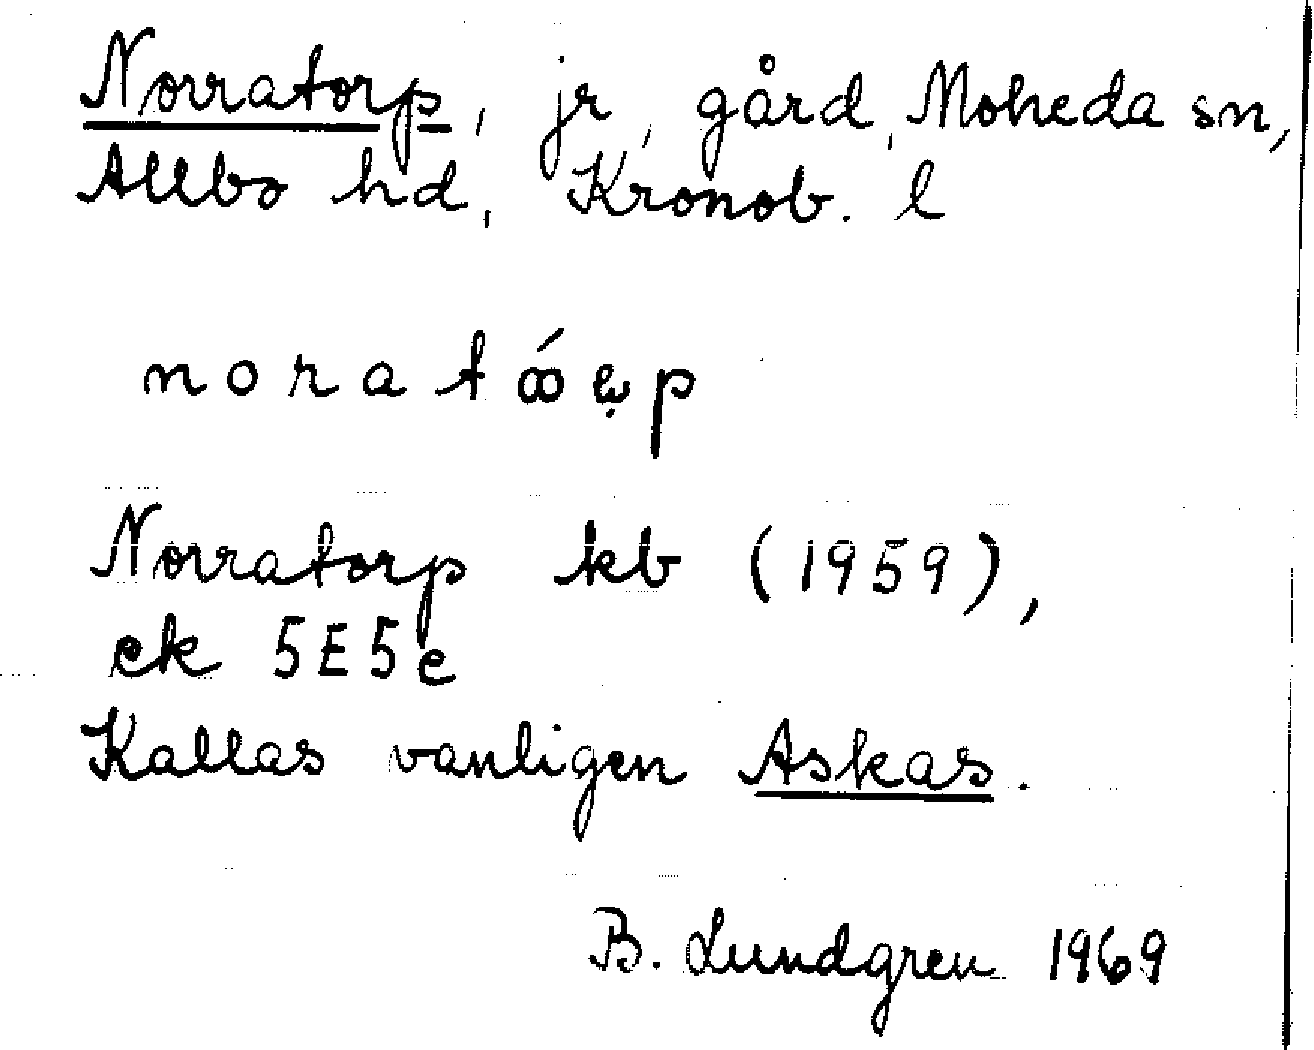 Norratorp, jr, gård, Moheda sn,
Allbo hd, Kronob. l
Norratorp kb (1959),
ek 5E5e
Kallas vanligen Askas.
B. Lundgren 1969